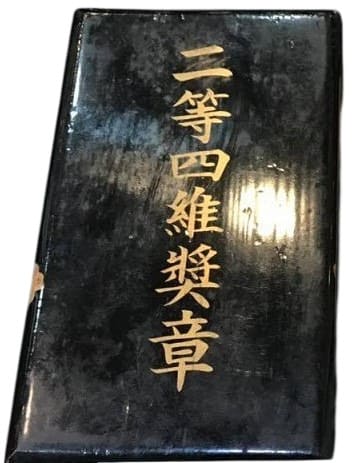 二等四維奬章